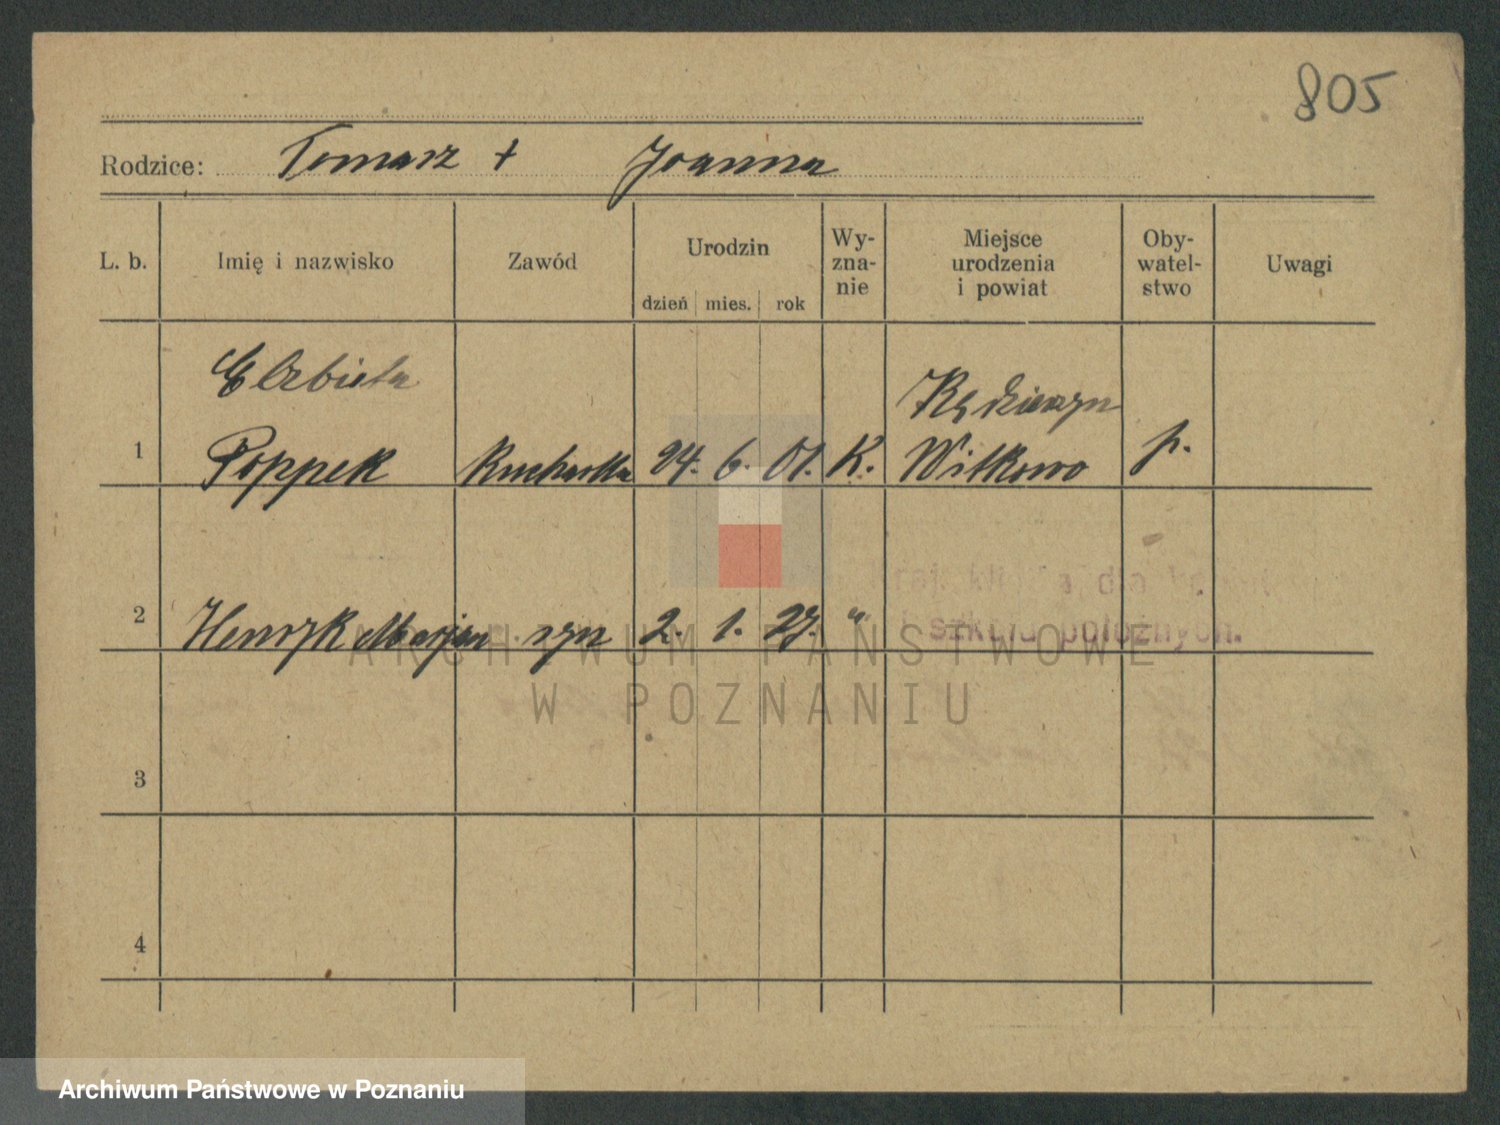 805
Rodzice: Tomasz + Joanna
L. b. Imię i nazwisko Zawód Urodzin Wy- Miejsce Oby- Uwagi
zna- urodzenia watel-
dzień mies. rok nie i powiat stwo
Elżbieta
1 Poppek Kucharka 24. 6. 01. K. Witkowo p.
2 Henryk Marjan syn 2. 1. 27. "
szkoła położnych.
ARCHIWUM PAŃSTWOWE
W POZNANIU
3
4
Archiwum Państwowe w Poznaniu